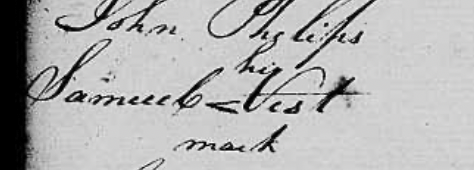 John Phelips
his
Samuel West
mark